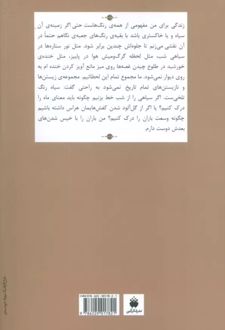 زندگی برای من مفهومی از همه‌ی رنگ‌هاست حتی اگر زمینه‌ی آن
سیاه و یا خاکستری باشد با بقیه‌ی رنگ‌های جعبه‌ی نگاهم حتماً در
آن نقشی می‌زنم تا جلوه‌اش چندین برابر شود. مثل نور ستاره‌ها در
سیاهی شب. مثل لحظه گرگ‌ومیش هوا در پاییز، مثل خنده‌ی
خورشید در طلوع چیدن غصه‌ها روی میز مانع آویز کردن خنده ام به
روی دیوار نمی‌شود. ما مجموع تمام این لحظاتیم. مجموعه‌ی زیستن‌ها
و نازیستن‌های تمام تاریخ نمی‌شود به راحتی گفت: سیاه رنگ
تلخی‌ست. اگر سیاهی را از شب خط بزنیم چگونه باید معنای ماه را
درک کنیم؟ یا اگر از گل‌آلود شدن کفش‌هایمان هراس داشته باشیم
چگونه وسعت باران را درک کنیم؟ من باران را با خیس شدن‌های
بعدش دوست دارم.